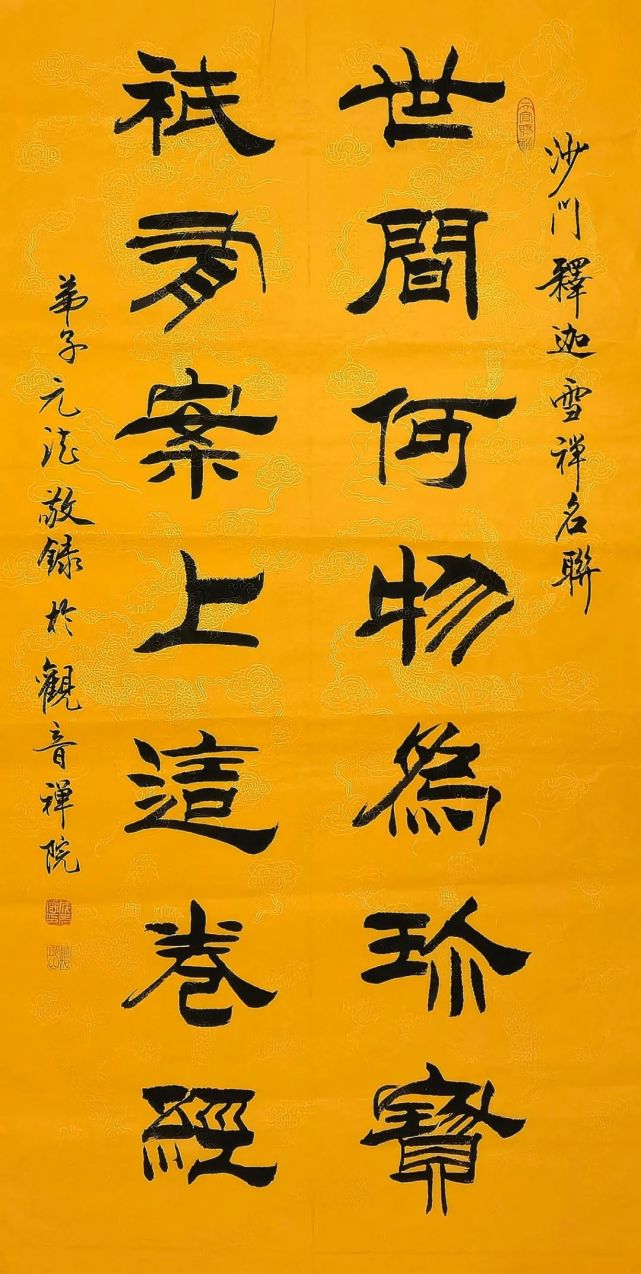 沙門釋迦雪禪名聯
世間何物為珍寶
祇有案上這卷經
弟子元法敬錄於觀音禪院